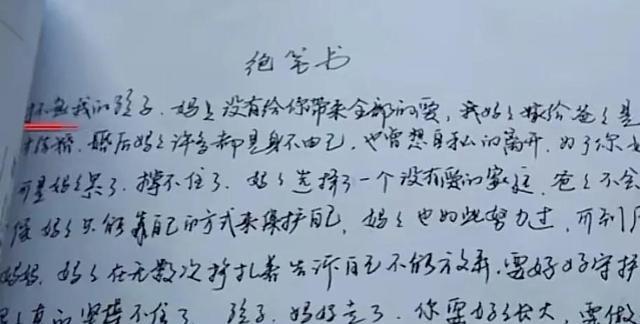 绝笔书
我的孩子.妈妈没有给你带来全部的爱,我妈妈嫁给爸爸是
婚后妈妈许多都是身不由己,也曾想自私的离开,为了你
可是妈妈累了.撑不住了.妈妈选择了一个没有爱的家庭,爸爸不会
妈妈只能靠自己的方式来保护自己,妈妈也如此努力过,可到
妈妈.妈妈在无数次挣扎着告诉自己不能放弃.要好好守护
真的坚持不住了.孩子.妈妈走了.你要好好长大,要做